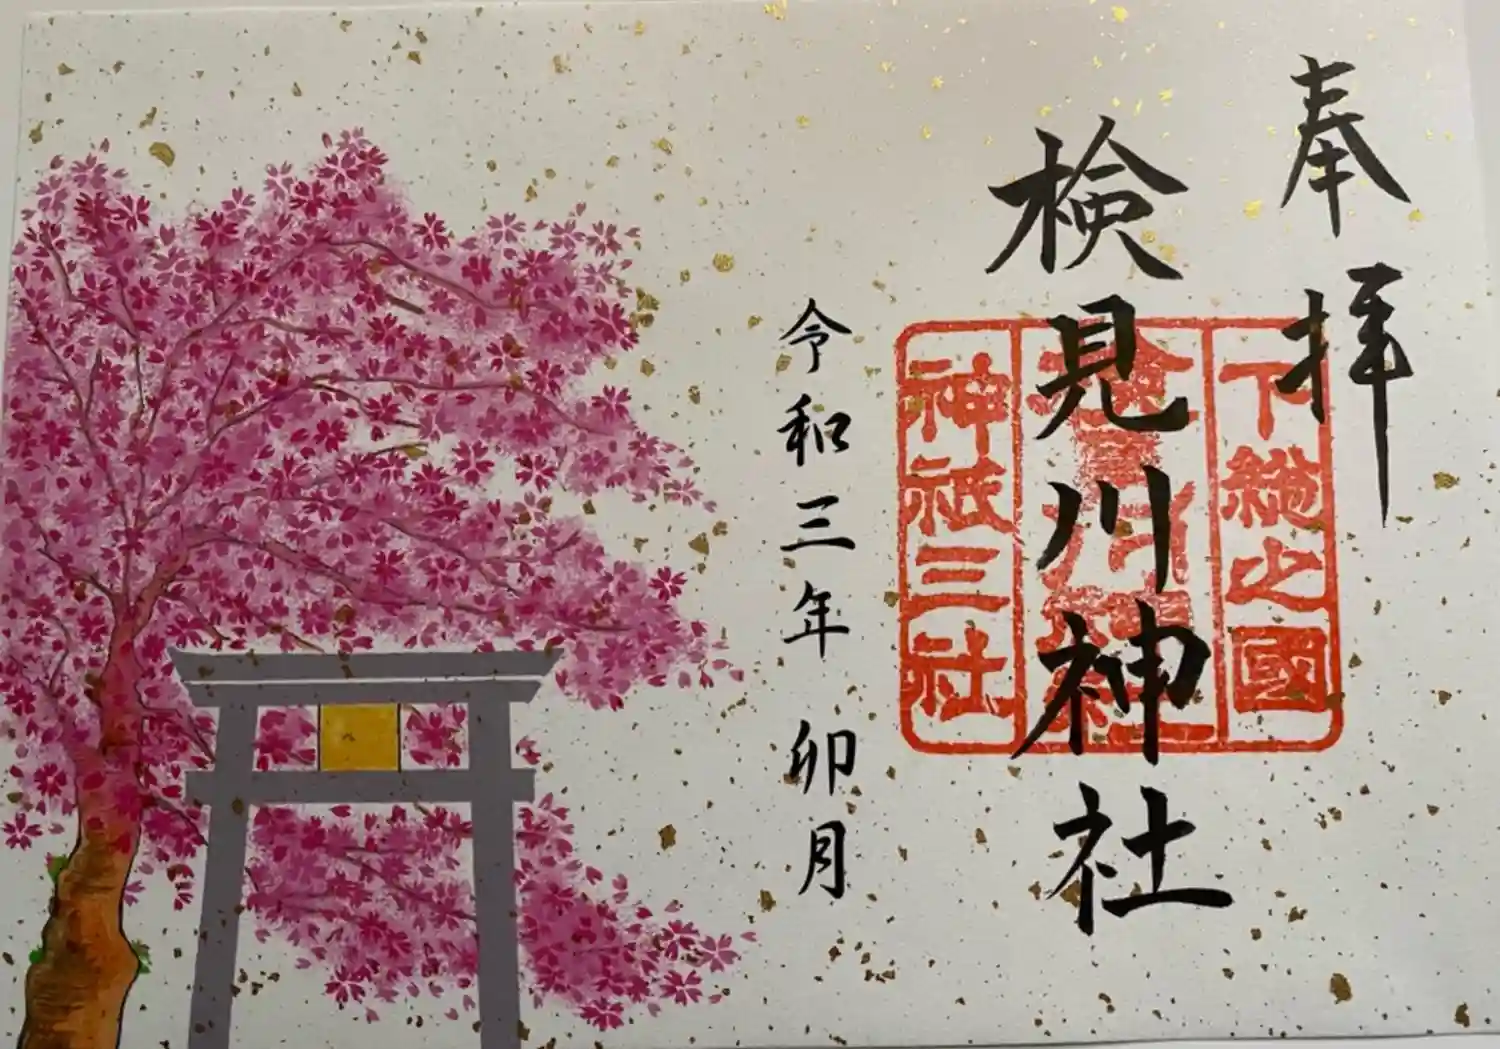 奉拝
下総之國
検見川神社
検見川神社
神祇三社
令和三年卯月